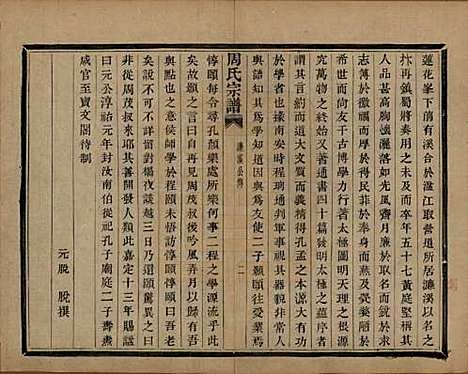 蓮花峯下前有溪合於湓江取營道所居濂溪以名之
抃再鎮蜀將奏用之未及而卒年五十七黃庭堅稱其
人品甚高胸懷灑落如光風霽月廉於取名而銳於求
志薄於徼福而厚於得民菲於奉身而燕及煢嫠陋於
希世而尚友千古博學力行著太極圖明天理之根源
究萬物之終始又著通書四十篇發明太極之蘊序者
謂其言約而道大文質而義精得孔孟之本源大有功
於學者也掾南安時程珦通判軍事視其氣貌非常人
與語知其為學知道因與為友使二子顥頤往受業焉
周氏宗譜
濂溪公傳
二
停頤每令尋孔顏樂處所樂何事二程之學源流乎此
矣故顥之言曰自再見周茂叔後吟風弄月以歸有吾
與點也之意侯師聖學於程頤未悟訪敦頤敦頤曰吾老
矣說不可不詳留對榻夜談越三日乃還頤驚異之曰
非從周茂叔來耶其善開發人類此嘉定十三年賜諡
曰元公淳祐元年封汝南伯從祀孔子廟庭二子壽燾
咸官至寶文閣待制
元脫脫撰